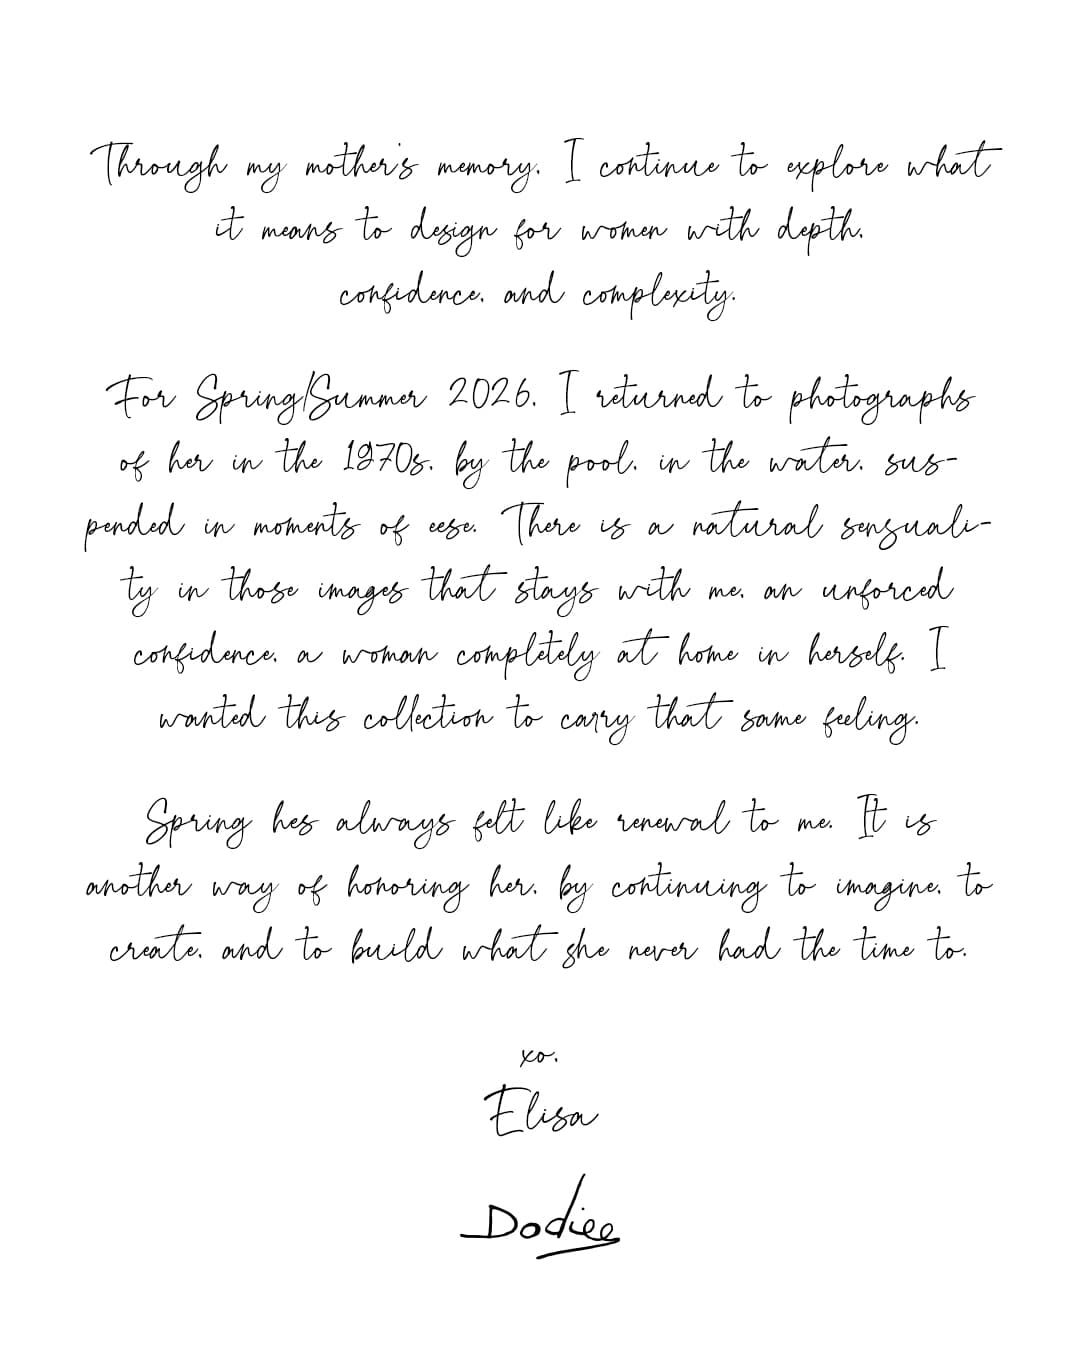 Through my mother's memory, I continue to explore what
it means to design for women with depth,
confidence, and complexity.
For Spring/Summer 2026, I returned to photographs
of her in the 1970s, by the pool, in the water, sus-
pended in moments of eese. There is a natural sensuali-
ty in those images that stays with me, an unforced
confidence, a woman completely at home in herself. I
wanted this collection to carry that same feeling.
Spring hes always felt like renewal to me. It is
another way of honoring her, by continuing to imagine, to
create, and to build what she never had the time to.
xo,
Elisa
Dodiee